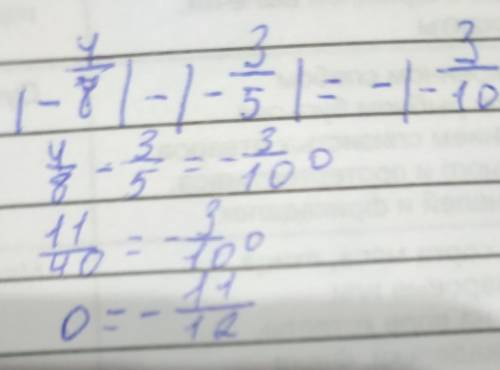 |-7/8|-|-3/5|=-|-3/10
7/8-3/5=-3/10 0
11/40=-3/10 0
0=-11/12